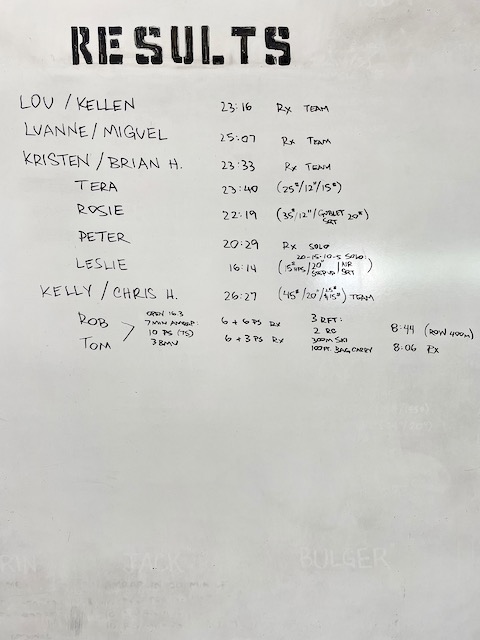 RESULTS
LOU / KELLEN 23:16 Rx TEAM
LUANNE / MIGUEL 25:07 Rx TEAM
KRISTEN / BRIAN H. 23:33 Rx TEAM
TERA 23:40 (25#/12"/15#)
ROSIE 22:19 (35#/12"/GOBLET SQT 20#)
PETER 20:29 Rx SOLO
20-15-10-5 SOLO:
LESLIE 16:14 (15# /20" STEP-UP/AIR SQT)
KELLY / CHRIS H. 26:27 (45#/20"/ ) TEAM
ROB > OPEN 16.3 6 + 6 PS Rx 3 RFT: 8:44 (ROW 400m)
7 MIN AMRAP: 2 RC
10 PS (75) 300m SKI
TOM 3 BMU 6 + 3 PS Rx 100FT. BAG CARRY 8:06 Rx
BULGER